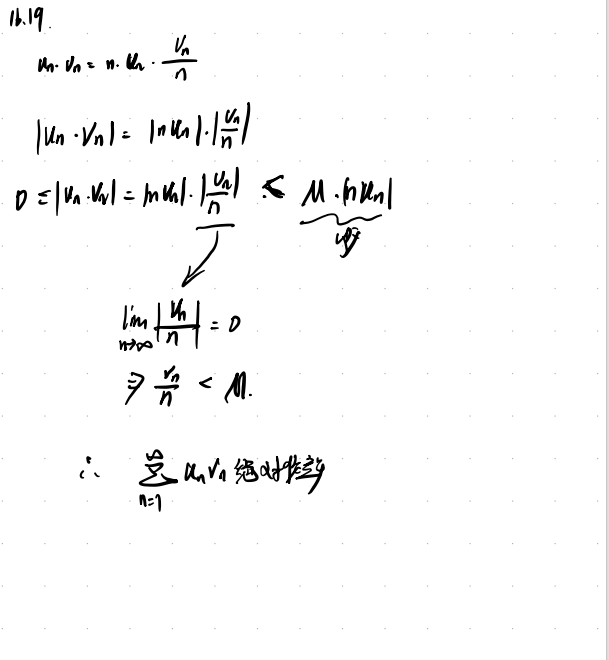 16.19.
uₙ·vₙ = n·uₙ·vₙ/n
|uₙ·vₙ| = |nuₙ|·|vₙ/n|
0 ≤ |uₙ·vₙ| = |nuₙ|·|vₙ/n| ≤ M·|nuₙ|
收敛
lim n→∞ |vₙ/n| = 0
⇒ vₙ/n < M.
∴ ∑ n=1 ∞ uₙvₙ 绝对收敛